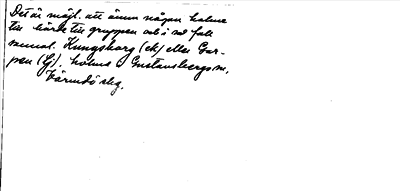 Det är möjl. att ännu någon holme
till hörde till gruppen och i så fall
Kungsborg (ek) eller Gar-
pen (Lj). holme i Gustavsbergs m,
Värmdö slg.